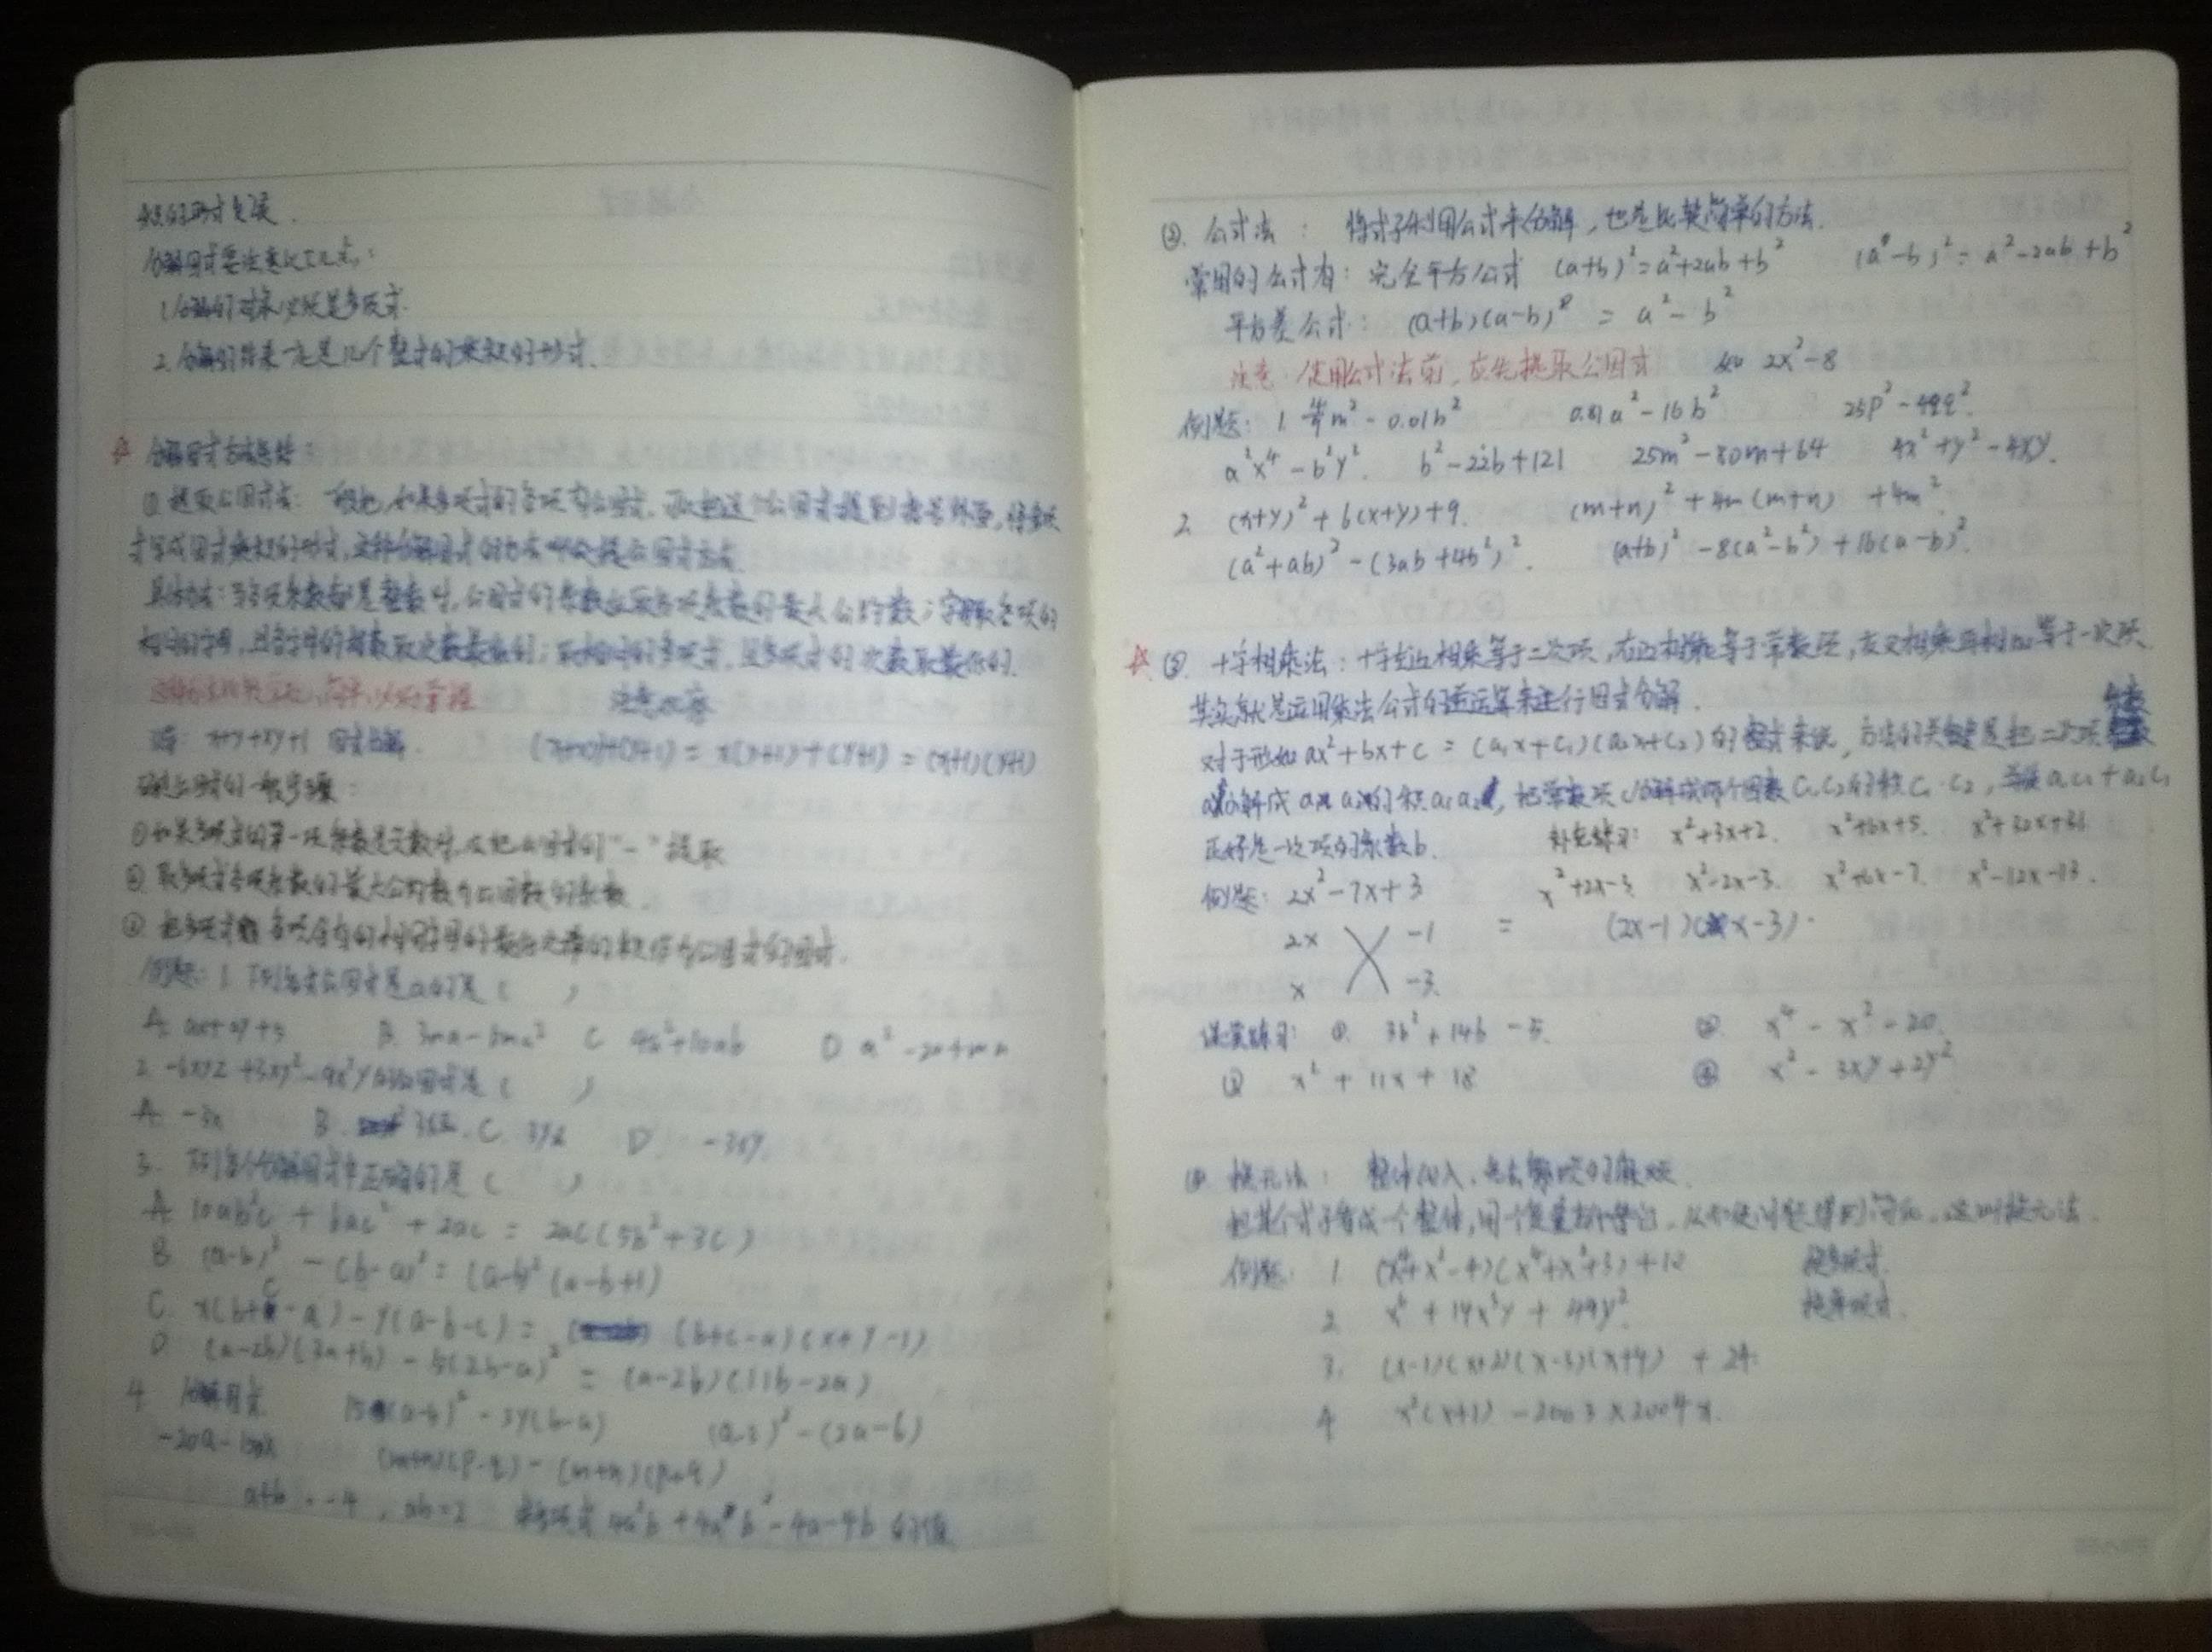 分解因式要注意以下几点：
1.分解的对象必须是多项式.
2.分解的结果一定是几个整式的乘积的形式.
分解因式方法总结
①提取公因式法：一般地，如果多项式的各项有公因式，可以把这个公因式提到括号外面，将多项
式写成因式乘积的形式，这种分解因式的方法叫做提公因式法
具体方法：当各项系数都是整数时，公因式的系数应取各项系数的最大公约数；字母取各项的
相同的字母，且各字母的指数取次数最低的；取相同的多项式，多项式的次数取最低的.
注意
x+y+xy+1 因式分解. = x(y+1)+(y+1) = (x+1)(y+1)
提公因式的一般步骤：
①如果多项式的第一项系数是负数时，应把公因式的"-"提取
②取多项式各项系数的最大公约数为公因数的系数.
③把多项式各项含有的相同字母的最低次幂的积作为公因式的因式.
例题：1.下列各式公因式是a的是（ ）
A. ax+ay+5 B. 3ma-6ma² C. 4a²+10ab D. a²-2a+ma
2. -6xyz+3xy²-9x²y的公因式是（ ）
A. -3x B. 3xz. C. 3yz D. -3xy.
3. 下列各个分解因式中正确的是（ ）
A. 10ab²c + 6ac² + 2ac = 2ac(5b²+3c)
B. (a-b)³ - (b-a)² = (a-b)²(a-b+1)
C. x(b+c-a)-y(a-b-c) = (b+c-a)(x+y-1)
D. (a-2b)(3a+b) - 5(2b-a)² = (a-2b)(11b-2a)
4. 分解因式
(m+n)(p-q) - (m+n)(p+q)
a+b = -4, ab=2 求多项式 4a²b + 4ab² - 4a-4b 的值
②. 公式法： 将式子利用公式来分解，也是比较简单的方法.
常用的公式有：完全平方公式 (a+b)²=a²+2ab+b² (a-b)²=a²-2ab+b²
平方差公式： (a+b)(a-b) = a²-b²
注意 使用公式法前，应先提取公因式 如 2x²-8
例题：1. m²-0.01b² 0.81a²-16b² 25p²-49q².
a²x⁴-b²y². b²-22b+121 25m²-80m+64 4x²+y²-4xy.
2. (x+y)²+6(x+y)+9. (m+n)²+4m(m+n)+4m².
(a²+ab)²-(3ab+4b²)². (a+b)²-8(a²-b²)+16(a-b)².
③. 十字相乘法：十字左边相乘等于二次项，右边相乘等于常数项，交叉相乘再相加等于一次项.
其实就是运用乘法公式的逆运算来进行因式分解.
对于形如ax²+bx+c = (a₁x+c₁)(a₂x+c₂)的整式来说，方法的关键是把二次项系数
a分解成 的积a₁a₂，把常数项c分解成两个因数c₁,c₂的积c₁·c₂，并使a₁c₂+a₂c₁
正好是一次项的系数b. 补充练习： x²+3x+2. x²+6x+5.
例题： 2x²-7x+3 x²+2x-3. x²-2x-3. x²+6x-7. x²-12x-13.
2x -1 = (2x-1)(x-3).
x -3.
课堂练习： ①. 3b²+14b-5. ②. x⁴-x²-20.
③ x²+11x+18 ④ x²-3xy+2y²
④ 换元法： 整体代入，
把某个式子看成一个整体，用一个变量去代替它，从而使问题得到简化，这叫换元法.
例题： 1. (x⁴+x²-4)(x⁴+x²+3)+10 换多项式.
2. x⁶+14x³y+49y². 换单项式.
3. (x-1)(x+2)(x-3)(x+4) + 24.
4. x²(x+1) - 2003×2004x.